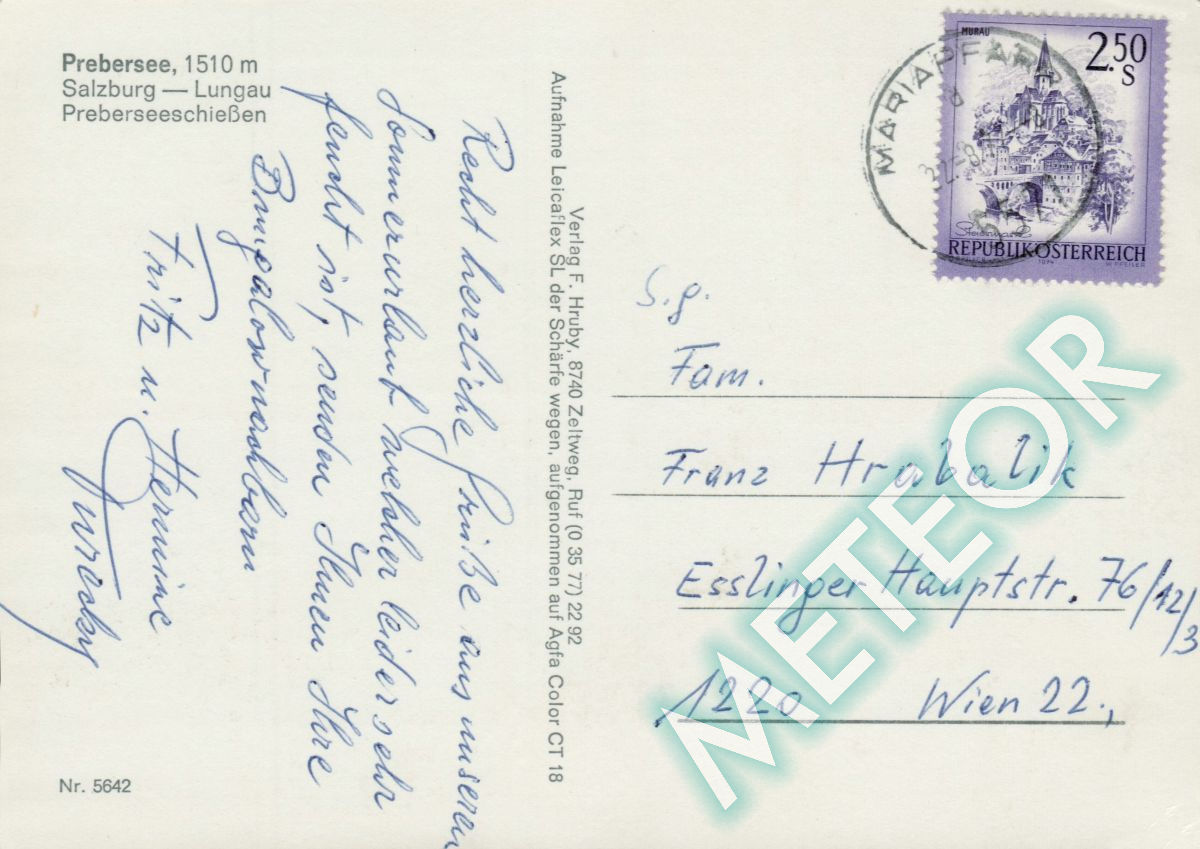 Prebersee, 1510 m
Salzburg — Lungau
Preberseeschießen
Recht herzliche Grüße aus unserem
Sommerurlaub welcher leider sehr
feucht ist, senden Ihnen Ihre
Bungalownachbarn
Fritz u. Hermine
Nr. 5642
Verlag F. Hruby, 8740 Zeltweg, Ruf (0 35 77) 22 92
Aufnahme Leicaflex SL der Schärfe wegen, aufgenommen auf Agfa Color CT 18
MURAU
2.50
S
Steiermark
REPUBLIK ÖSTERREICH
1974
W. PFEILER
MARIAPFARR
5571
S.g.
Fam.
Franz Hrabalik
Esslinger Hauptstr. 76/12/3
1220 Wien 22.,
METEOR